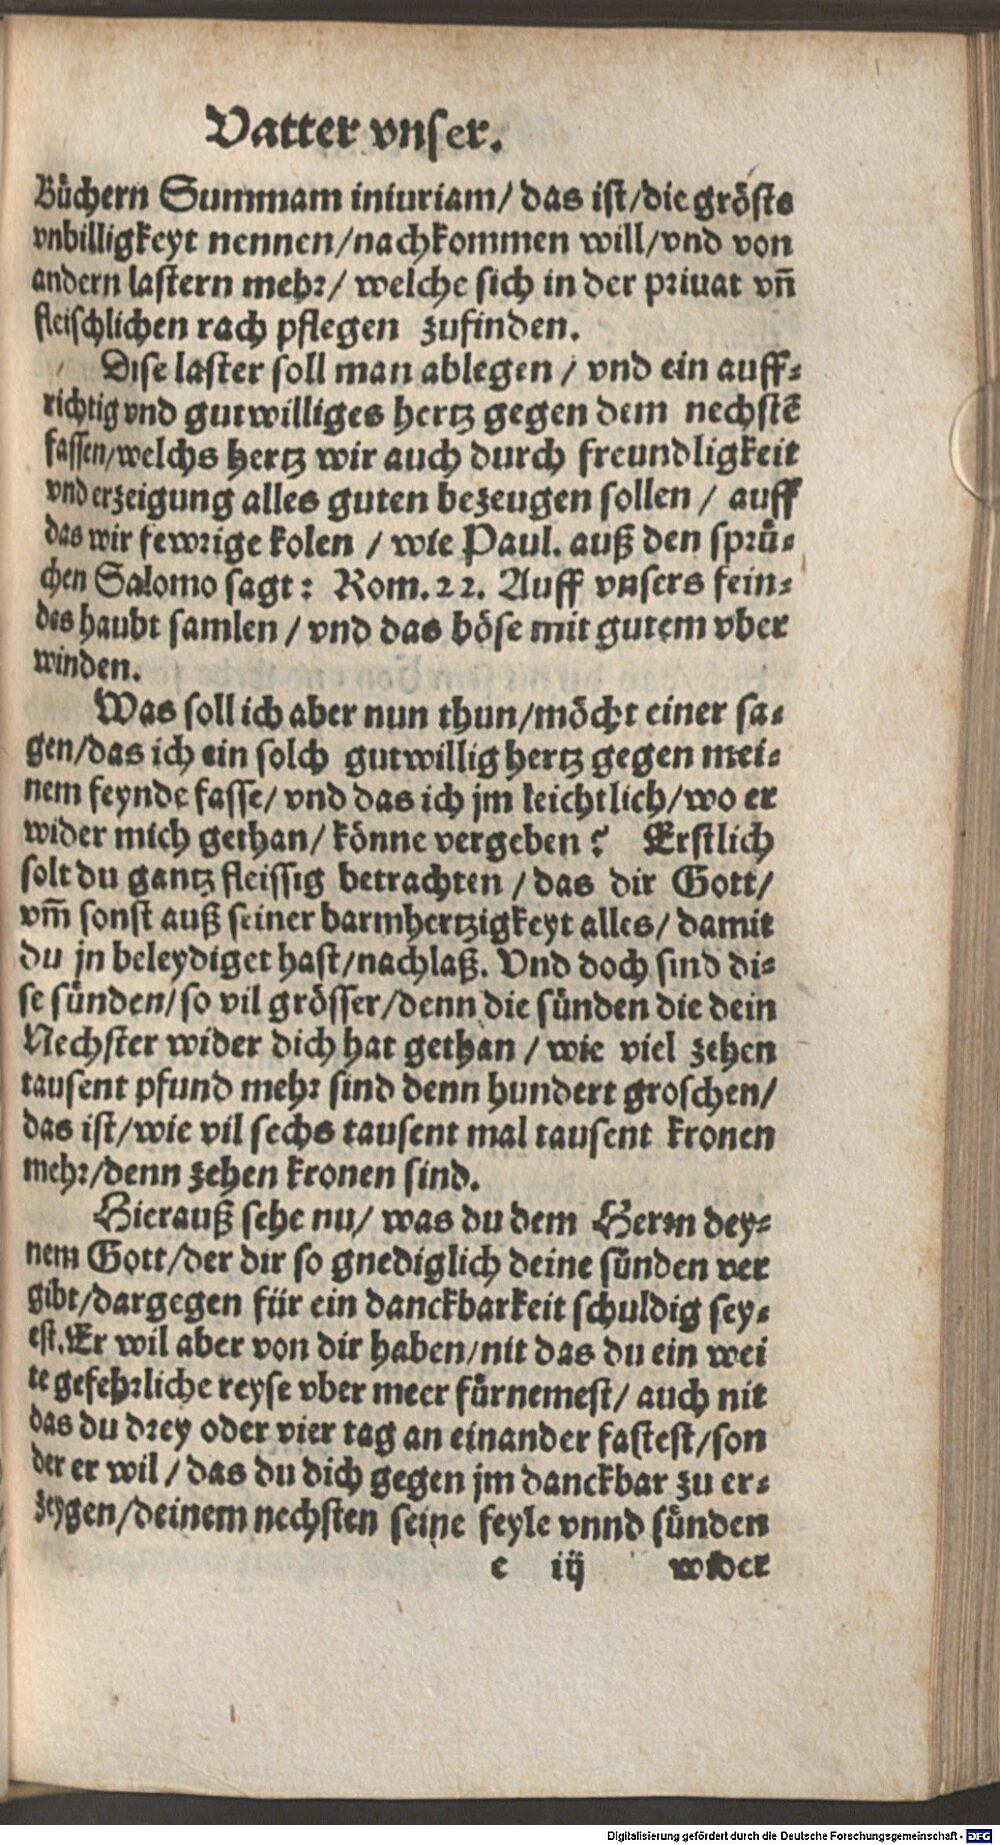 Vatter vnser.
Büchern Summam iniuriam/ das ist/die gröste
vnbilligkeyt nennen/nachkommen will/vnd von
andern lastern mehr/ welche sich in der priuat vñ
fleischlichen rach pflegen zufinden.
Dise laster soll man ablegen / vnd ein auff-
richtig vnd gutwilliges hertz gegen dem nechstẽ
fassen/welchs hertz wir auch durch freundligkeit
vnd erzeigung alles guten bezeugen sollen / auff
das wir fewrige kolen / wie Paul. auß den sprü-
chen Salomo sagt: Rom. 22. Auff vnsers fein-
des haubt samlen / vnd das böse mit gutem vber
winden.
Was soll ich aber nun thun/möcht einer sa-
gen/das ich ein solch gutwillig hertz gegen mei-
nem feynde fasse/ vnd das ich jm leichtlich/wo er
wider mich gethan/ könne vergeben? Erstlich
solt du gantz fleissig betrachten / das dir Gott/
vm̃ sonst auß seiner barmhertzigkeyt alles/ damit
du jn beleydiget hast/nachlaß. Vnd doch sind di-
se sünden/so vil grösser/denn die sünden die dein
Nechster wider dich hat gethan / wie viel zehen
tausent pfund mehr sind denn hundert groschen/
das ist/wie vil sechs tausent mal tausent kronen
mehr/denn zehen kronen sind.
Hierauß sehe nu/ was du dem Herrn dey-
nem Gott/der dir so gnediglich deine sünden ver
gibt/dargegen für ein danckbarkeit schuldig sey-
est. Er wil aber von dir haben/nit das du ein wei
te gefehrliche reyse vber meer fürnemest/ auch nit
das du drey oder vier tag an einander fastest/son
der er wil / das du dich gegen jm danckbar zu er-
zeygen/deinem nechsten seine feyle vnnd sünden
e iij wider
Digitalisierung gefördert durch die Deutsche Forschungsgemeinschaft - DFG